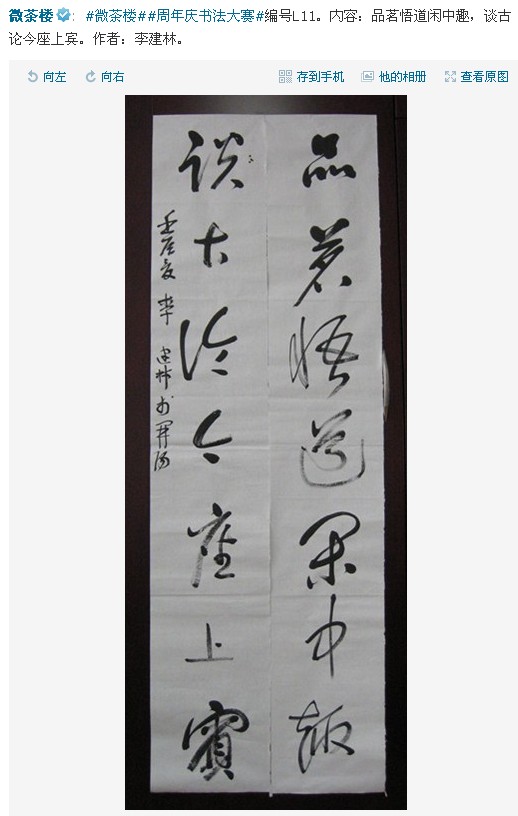 微茶楼: #微茶楼##周年庆书法大赛#编号L11。内容：品茗悟道闲中趣，谈古
论今座上宾。作者：李建林。
向左 向右 存到手机 他的相册 查看原图
品茗悟道閒中趣
談古论今座上賓
壬辰夏 李建林书